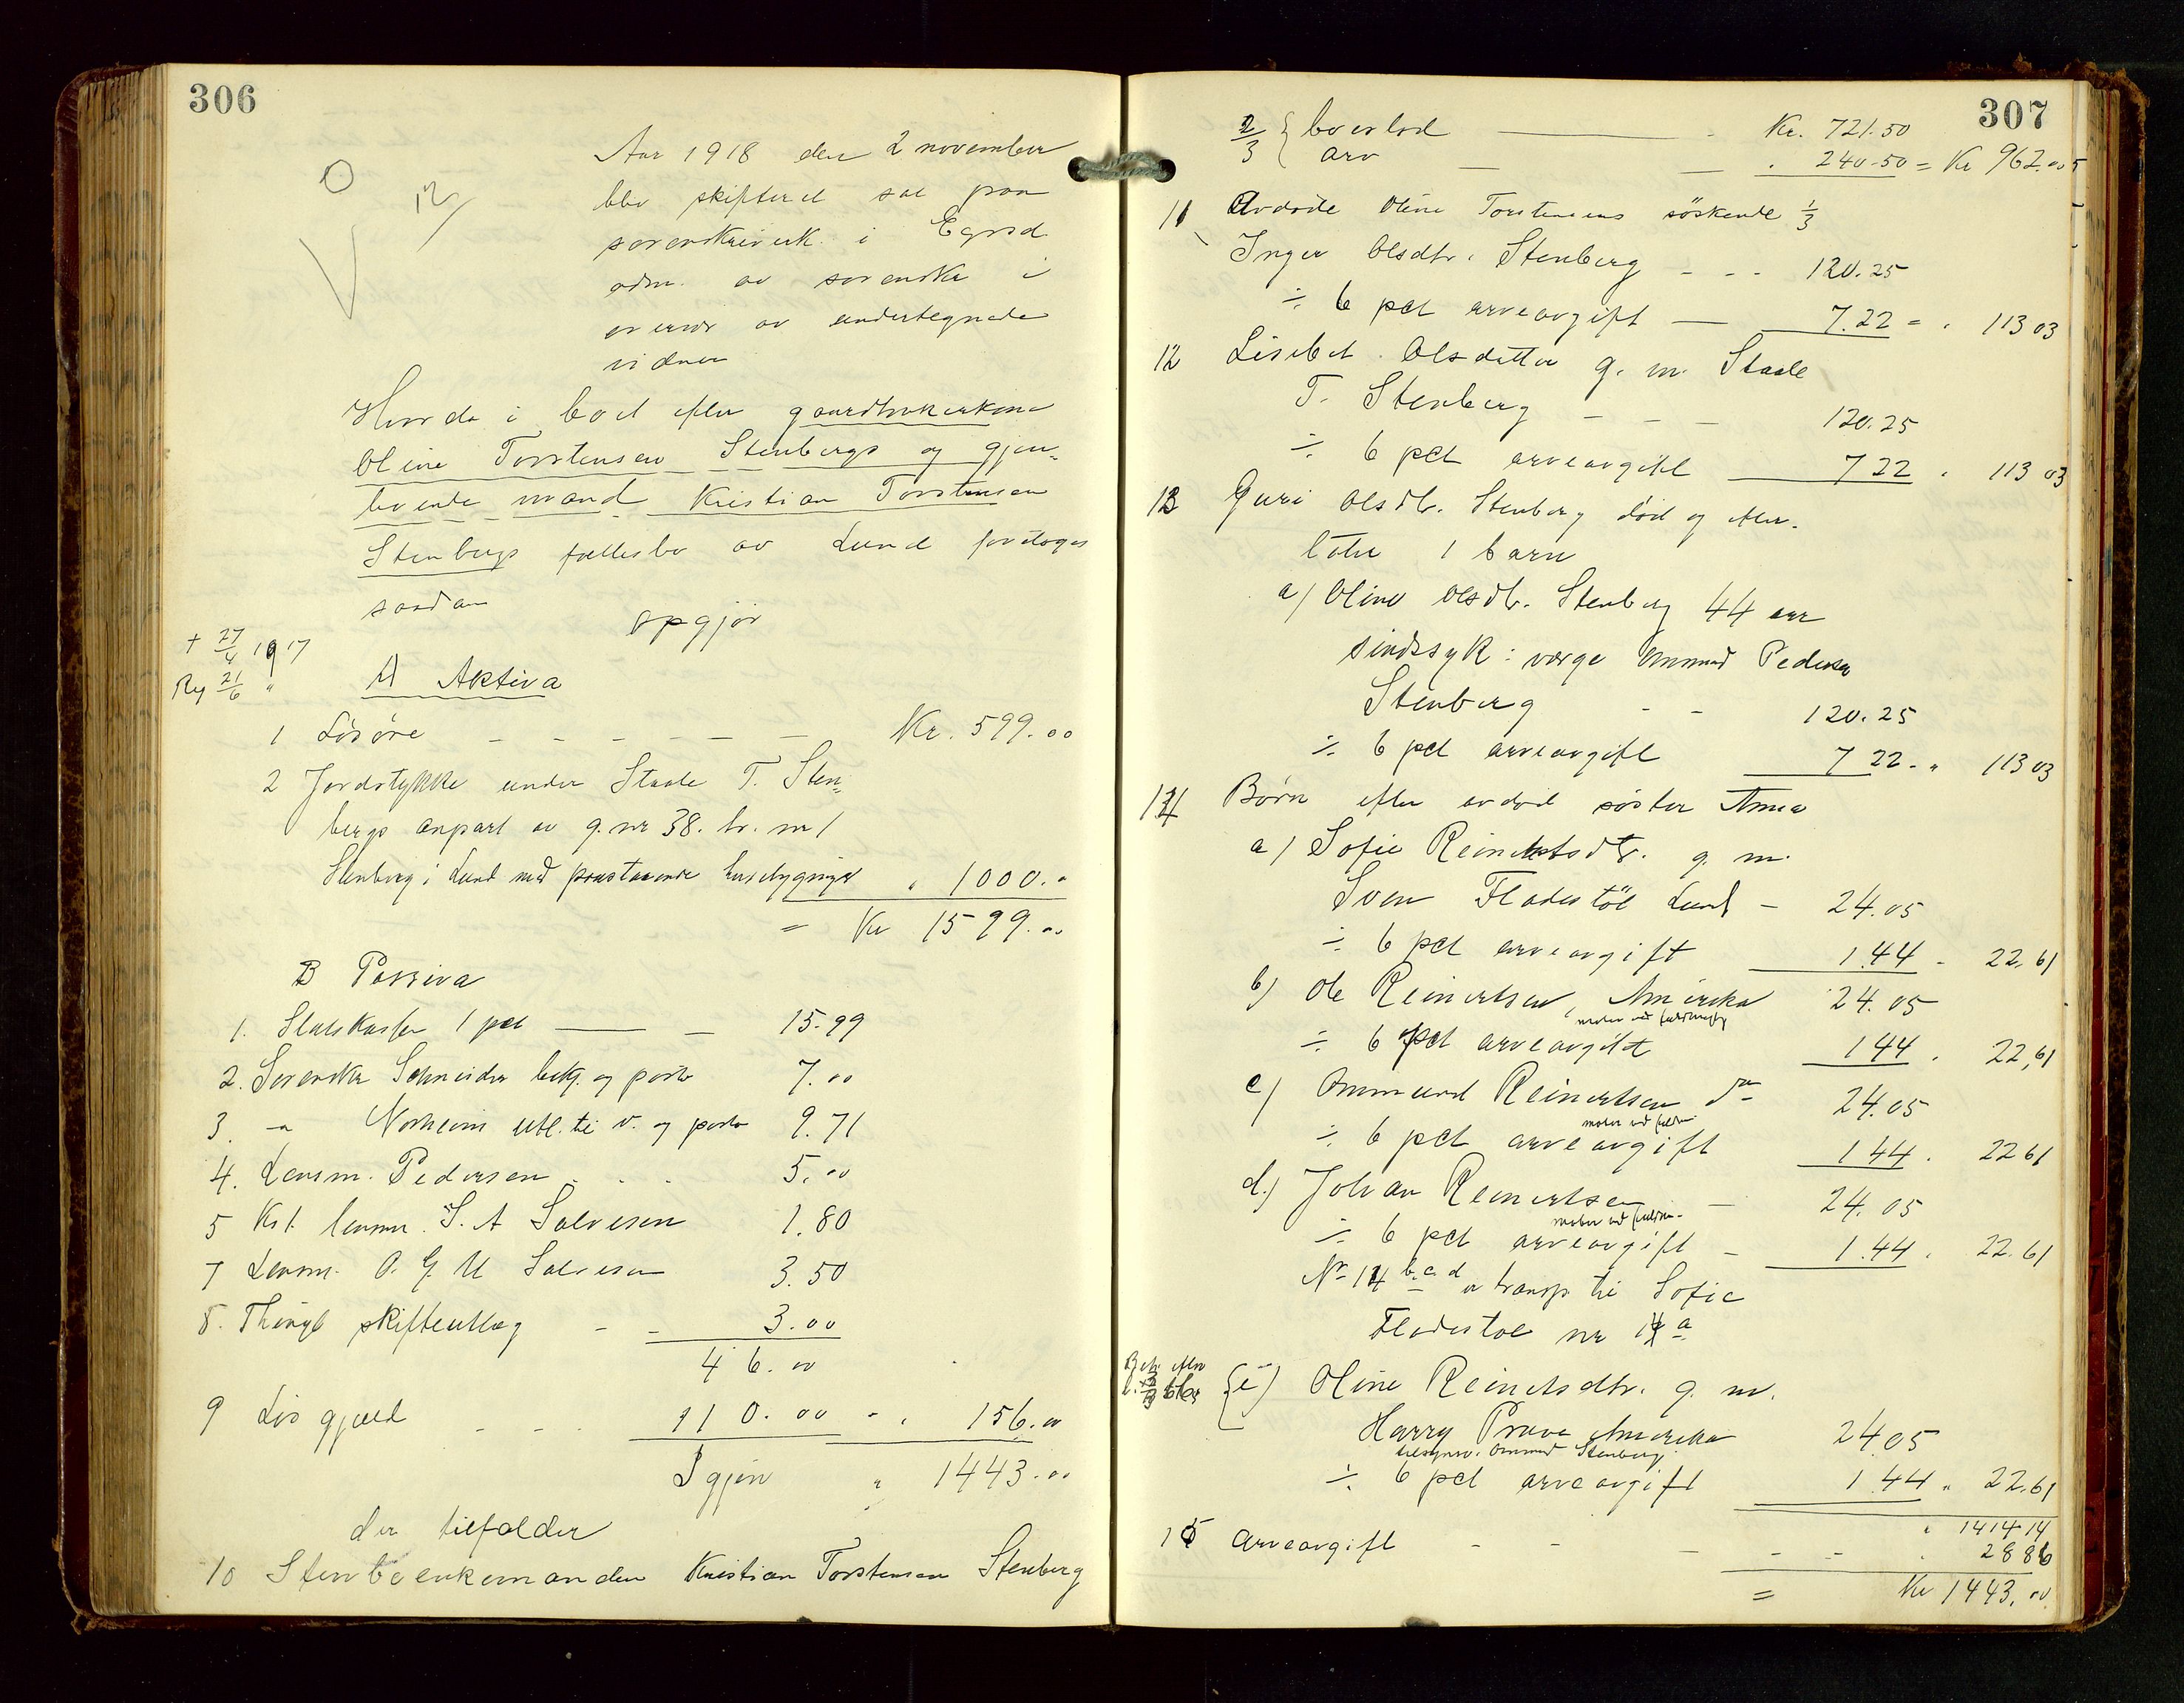 306
Aar 1918 den 2 november
blev skifteret sat paa
sorenskriverk. i Egrsd
adm. av sorenskr i
overvær av undertegnede
vidner
Hvorda i boet efter gaardbrukerkone
Oline Torstensen Stenbergs og gjen-
levende mand Kristian Torstensen
Stenbergs fællesbo av Lund foretoges
saadan
opgjør
+ 27/4 1917
Reg 21/6 "
A Aktiva
1 Løsøre - - - - - - Kr. 599.00
2 Jordstykke under Staale T. Sten-
bergs anpart av g.nr 38. br. nr 1
Stenberg i Lund med paastaaende husebygninger " 1000.-
= Kr 1599.00
B Passiva
1. Statskassen 1 pct — - 15.99
2. Sorenskr Schneider bekj. og porto 7.00
3. - " Norheim utl. til v. og porto 9.71
4. Lensm. Pedersen . . . 5.00
5 Kst. lensm. S. A Salvesen 1.80
7 Lensm. O. G. U Salvesen 3.50
8. Thingb skifteutlæg - - 3.00
46.00
9 Løs gjæld - - - 110.00 - " 156.00
Igjen " 1443.00
der tilfalder
10 Stervboenkemanden Kristian Torstensen Stenberg
307
2/3 { boeslod — . Kr. 721.50
arv — — . 240.50 = Kr 962.00
11 Avdøde Oline Torstensens söskende 1/3
Inger Olsdtr. Stenberg - - - 120.25
÷ 6 pct arveavgift — 7.22 = " 113 03
12 Lisebet Olsdatter g. m. Staale
T. Stenberg - - - 120.25
÷ 6 pct arveavgift 7 22 " 113 03
13 Guri Olsdtr. Stenberg död og efter-
latte 1 barn
a) Oline Olsdtr. Stenberg 44 aar
sindssyk: værge Ommund Pedersen
Stenberg - - 120.25
÷ 6 pct arveavgift 7 22 - " 113 03
14 Børn efter avdød søster Anna
a) Sofie Reinertsdtr. g. m.
Sven Fladestöl Lund - 24.05
÷ 6 pct arveavgift 1.44 - 22.61
b) Ole Reinertsen, Amerika 24.05
÷ 6 pct arveavgift 1 44 . 22,61
c) Ommund Reinertsen do 24.05
÷ 6 pct arveavgift 1 44 . 22 61
d.) Johan Reinertsen - 24.05
÷ 6 pct arveavgift - 1.44 . 22.61
No 14 b.c.d er transp til Sofie
Fladestøl nr 14 a
e) Oline Reinertsdtr. g. m.
Harry Prave Amerika 24.05
tilsynsv. Ommund Stenberg
÷ 6 pct arveavgift 1.44 " 22.61
" 1414 14
15 Arveavgift - - - - - . 28 86
= Kr 1443.00